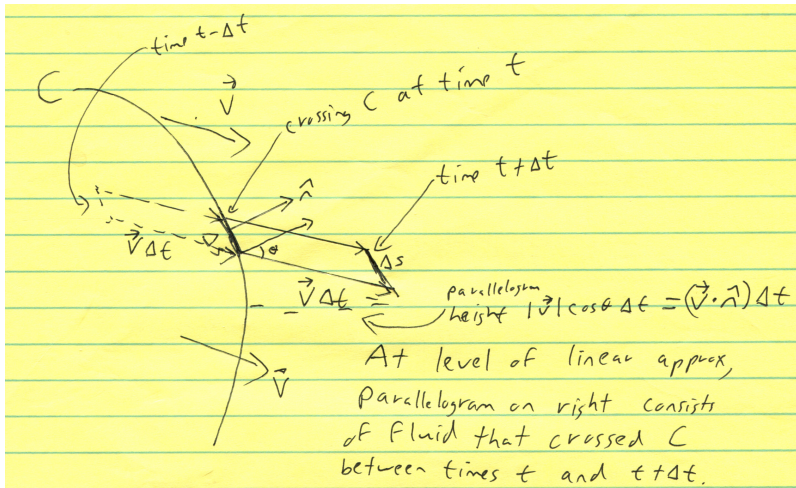 time t-Δt
C
V⃗
crossing C at time t
n̂
time t+Δt
V⃗Δt
Δs
θ
Δs
V⃗Δt
parallelogram
height |V⃗|cosθ Δt = (V⃗·n̂)Δt
V⃗
At level of linear approx,
parallelogram on right consists
of fluid that crossed C
between times t and t+Δt.